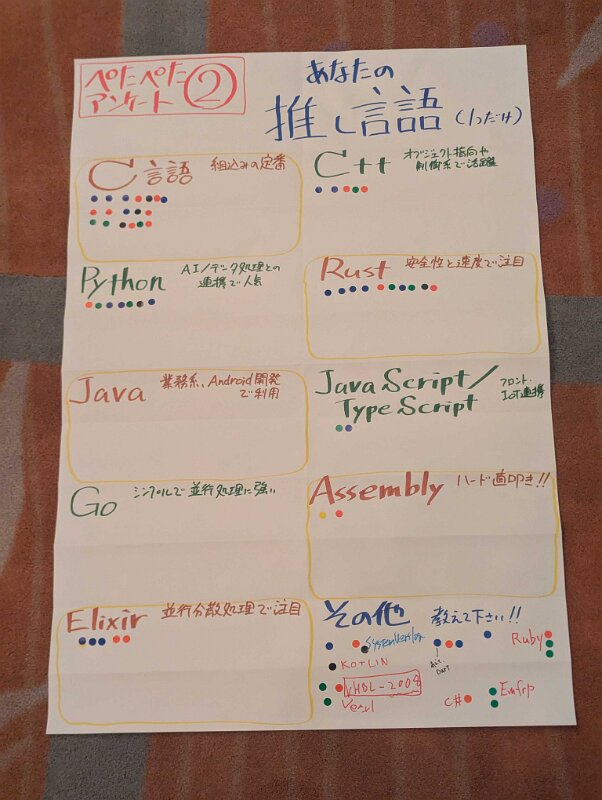 ぺたぺた
アンケート ②
あなたの
推し言語 (1つだけ)
C言語 組込みの定番
C++ オブジェクト指向や
制御系で活躍
Python AI/データ処理との
連携で人気
Rust 安全性と速度で注目
Java 業務系、Android開発
で利用
JavaScript/
TypeScript
フロント・
IoT連携
Go シンプルで並行処理に強い
Assembly ハード直叩き!!
Elixir 並行分散処理で注目
その他 教えて下さい!!
SystemVerilog
Ruby
KOTLIN
Dart
VHDL-2008
C#
Emfrp